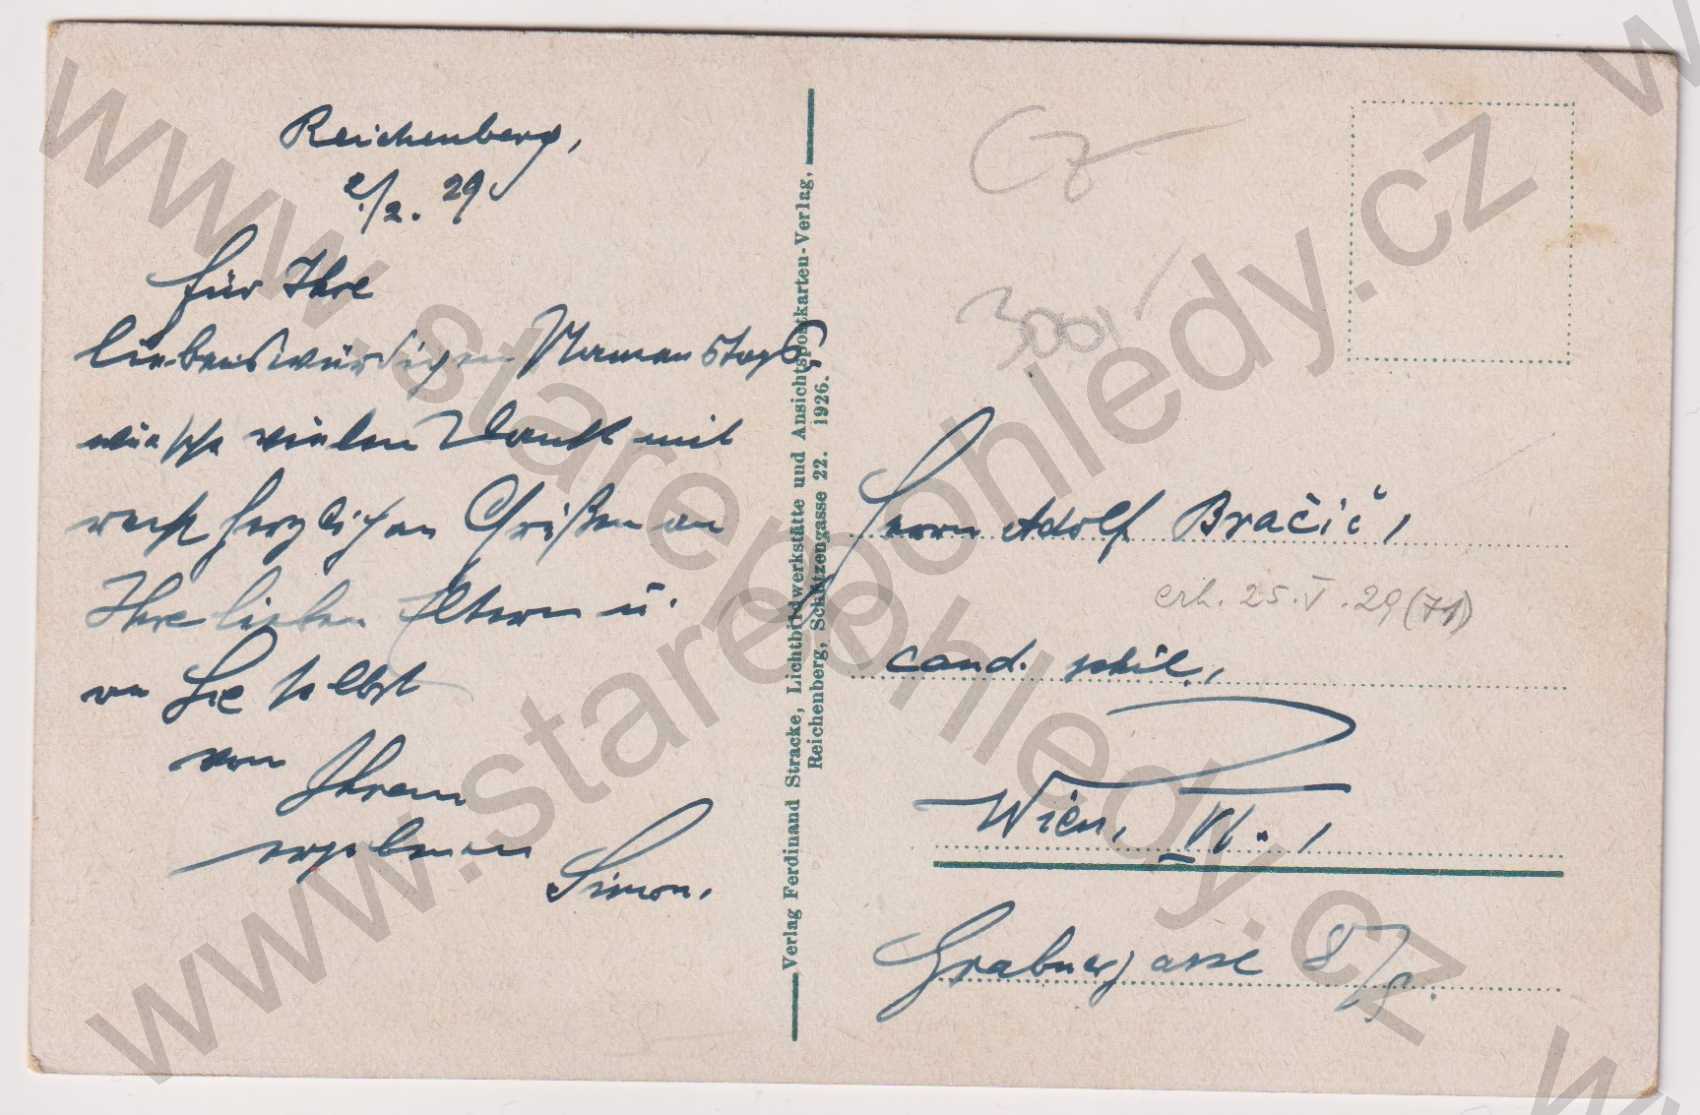 Reichenberg,
2./2. 29.
Für Ihre
liebenswürdigen Namenstags-
wünsche vielen Dank mit
recht herzlichen Grüßen an
Ihre lieben Eltern u.
an Sie selbst
von Ihrem
ergebenen
Simon.
Verlag Ferdinand Stracke, Lichtbildwerkstätte und Ansichtspostkarten-Verlag,
Reichenberg, Schützengasse 22. 1926.
Cz
300,-
Herrn Adolf Bračič,
erh. 25.V.29 (71)
cand. phil.,
Wien, VI.,
Grabnergasse 8/
www.starepohledy.cz
www.starepohledy.cz